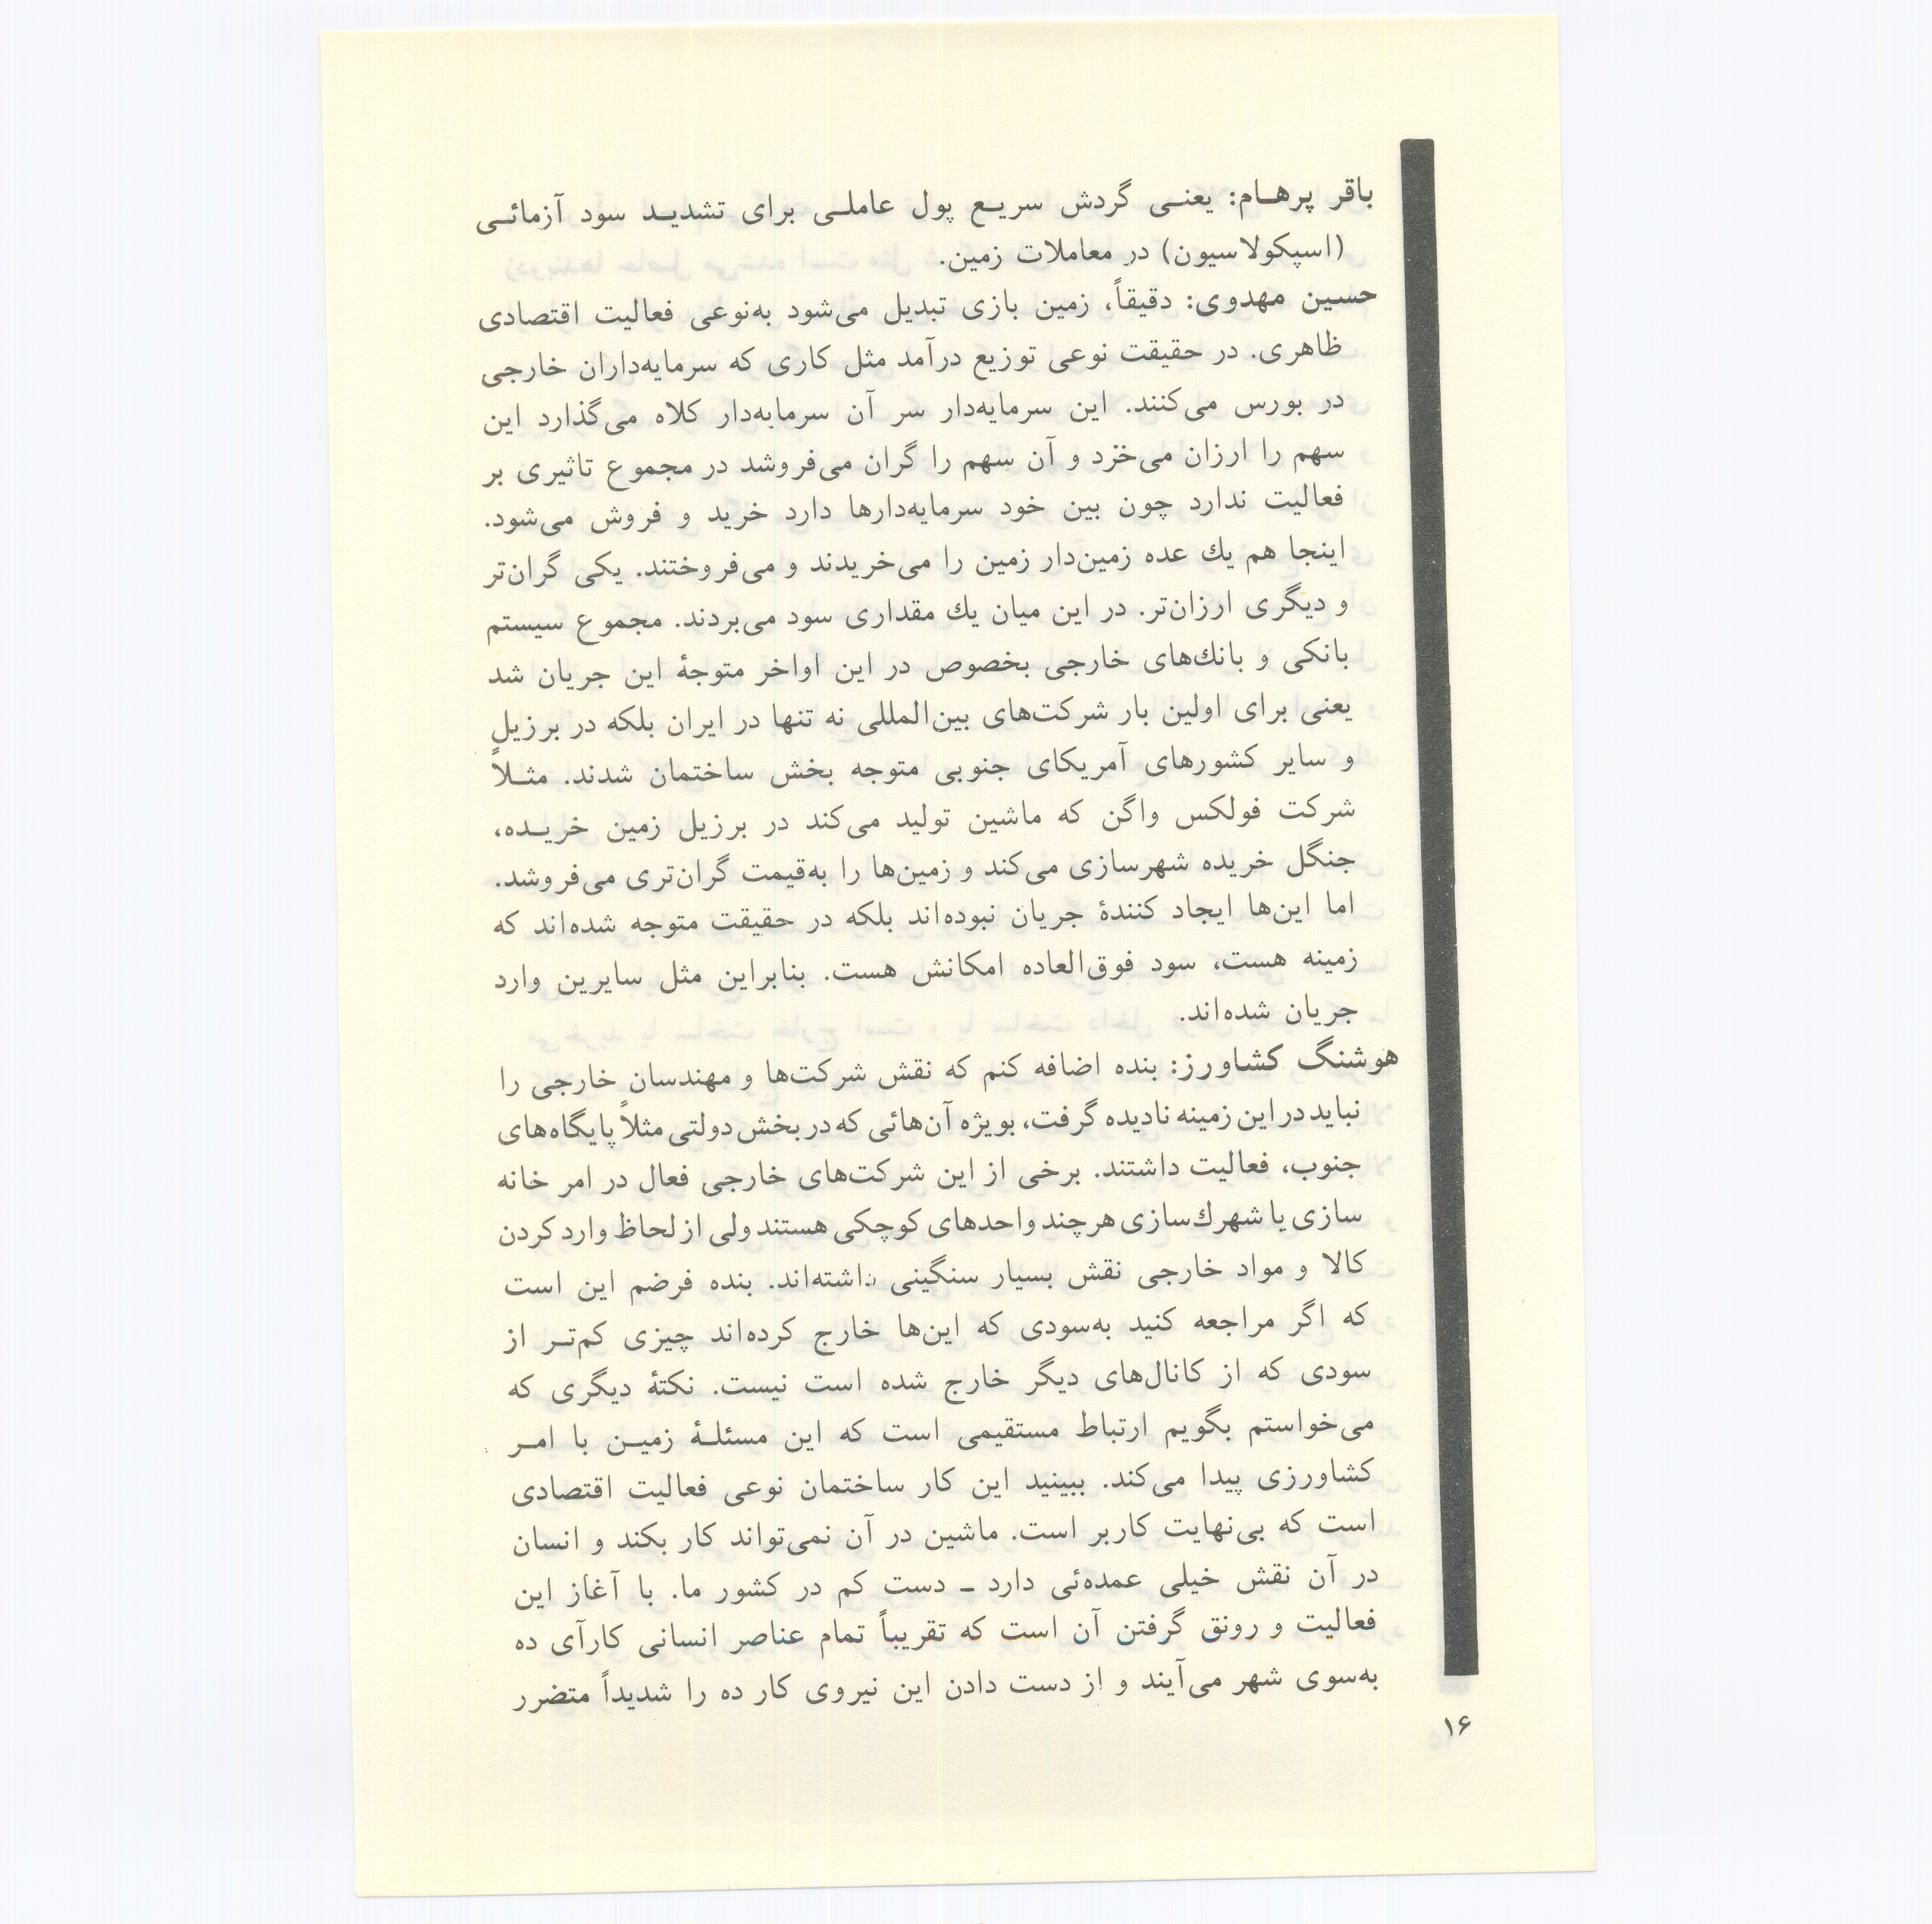 باقر پرهـام: یعنـی گردش سریـع پول عاملـی برای تشدیـد سود آزمائـی
(اسپکولاسیون) در معاملات زمین.
حسین مهدوی: دقیقاً، زمین بازی تبدیل می‌شود به‌نوعی فعالیت اقتصادی
ظاهری. در حقیقت نوعی توزیع درآمد مثل کاری که سرمایه‌داران خارجی
در بورس می‌کنند. این سرمایه‌دار سر آن سرمابه‌دار کلاه می‌گذارد این
سهم را ارزان می‌خرد و آن سهم را گران می‌فروشد در مجموع تاثیری بر
فعالیت ندارد چون بین خود سرمایه‌دارها دارد خرید و فروش می‌شود.
اینجا هم یك عده زمین‌دار زمین را می‌خریدند و می‌فروختند. یکی گران‌تر
و دیگری ارزان‌تر. در این میان یك مقداری سود می‌بردند. مجموع سیستم
بانکی و بانك‌های خارجی بخصوص در این اواخر متوجۀ این جریان شد
یعنی برای اولین بار شرکت‌های بین‌المللی نه تنها در ایران بلکه در برزیل
و سایر کشورهای آمریکای جنوبی متوجه بخش ساختمان شدند. مثـلاً
شرکت فولکس واگن که ماشین تولید می‌کند در برزیل زمین خریـده،
جنگل خریده شهرسازی می‌کند و زمین‌ها را به‌قیمت گران‌تری می‌فروشد.
اما این‌ها ایجاد کنندۀ جریان نبوده‌اند بلکه در حقیقت متوجه شده‌اند که
زمینه هست، سود فوق‌العاده امکانش هست. بنابراین مثل سایرین وارد
جریان شده‌اند.
هوشنگ کشاورز: بنده اضافه کنم که نقش شرکت‌ها و مهندسان خارجی را
نباید در این زمینه نادیده گرفت، بویژه آن‌هائی که در بخش دولتی مثلاً پایگاه‌های
جنوب، فعالیت داشتند. برخی از این شرکت‌های خارجی فعال در امر خانه
سازی یا شهرك‌سازی هرچند واحدهای کوچکی هستند ولی از لحاظ وارد کردن
کالا و مواد خارجی نقش بسیار سنگینی داشته‌اند. بنده فرضم این است
که اگر مراجعه کنید به‌سودی که این‌ها خارج کرده‌اند چیزی کم‌تـر از
سودی که از کانال‌های دیگر خارج شده است نیست. نکتۀ دیگری که
می‌خواستم بگویم ارتباط مستقیمی است که این مسئلـۀ زمیـن با امـر
کشاورزی پیدا می‌کند. ببینید این کار ساختمان نوعی فعالیت اقتصادی
است که بی‌نهایت کاربر است. ماشین در آن نمی‌تواند کار بکند و انسان
در آن نقش خیلی عمده‌ئی دارد ـ دست کم در کشور ما. با آغاز این
فعالیت و رونق گرفتن آن است که تقریباً تمام عناصر انسانی کارآی ده
به‌سوی شهر می‌آیند و از دست دادن این نیروی کار ده را شدیداً متضرر
۱۶